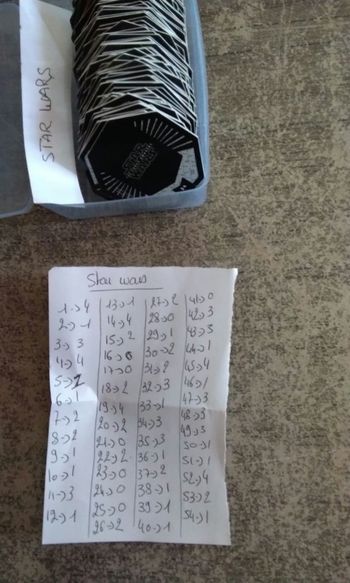 STAR WARS
STAR WARS
Star wars
1->4
2->1
3->3
4->4
5->2
6->1
7->2
8->2
9->1
10->1
11->3
12->1
13->1
14->4
15->2
16->0
17->0
18->2
19->4
20->2
21->0
22->2
23->0
24->0
25->0
26->2
27->2
28->0
29->1
30->2
31->2
32->3
33->1
34->3
35->3
36->1
37->2
38->1
39->1
40->1
41->0
42->3
43->3
44->1
45->4
46->1
47->3
48->3
49->3
50->1
51->1
52->4
53->2
54->1